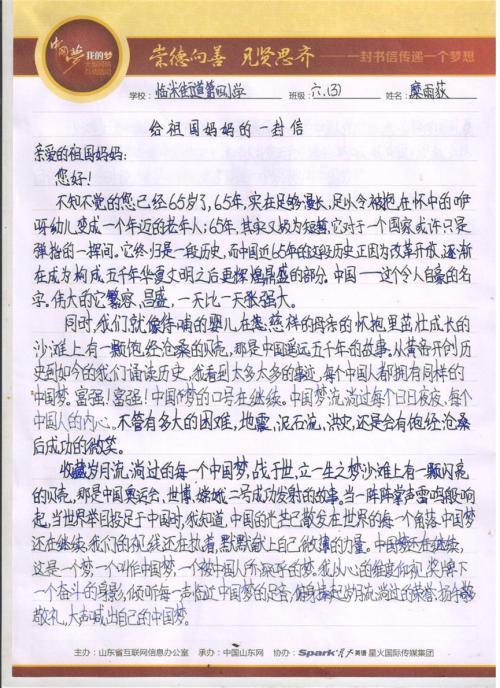 中国梦
我的梦
大型网络
互动活动
崇德向善 见贤思齐——一封书信传递一个梦想
学校:临米街道第四小学 班级:六.(3) 姓名:糜雨荻
给祖国妈妈的一封信
亲爱的祖国妈妈:
您好!
不知不觉的您已经65岁了,65年,实在足够漫长,足以令被抱在怀中的咿
呀幼儿变成一个年迈的老年人;65年,其实又颇为短暂,它对于一个国家或许只是
弹指的一挥间。它终归是一段历史,而中国近65年的这段历史正因为改革开放,逐渐
在成为构成五千年华夏文明之后更辉煌鼎盛的部分。中国——这个令人自豪的名
字。伟大的它繁容、昌盛,一天比一天强大。
同时,我们就像待哺的婴儿在您慈祥的母亲的怀抱里茁壮成长的
沙滩上有一颗饱经沧桑的贝壳,那是中国遥远五千年的故事。从黄帝开创历
史到如今的我们诵读历史,我看到太多太多的事迹,每个中国人都拥有同样的
中国梦。富强!富强!中国梦的口号在继续。中国梦流淌过每个日日夜夜、每个
中国人的内心。不管有多大的困难,地震、泥石流、洪灾,还是会有饱经沧桑
后成功的微笑。
收藏岁月流淌过的每一个中国梦,战于世,立一生之梦沙滩上有一颗闪亮
的贝壳,那是中国奥运会、世博、嫦娥二号成功发射的故事。当一阵阵掌声雷鸣般响
起,当世界举目投足于中国时,我知道,中国的光芒已散发在世界的每一个角落。中国梦
还在继续,我们的视线还在执着,默默献上自己微薄的力量。中国梦还在继续,
这是一个梦,一个叫作中国梦,一个被中国人所深呼的梦。我从心的维度仰视,奖牌下
一个奋斗的身影,倾听每一声临近中国梦的足音,俯身捧起岁月流淌过的荣誉,抬手敬
敬礼,大声喊出自己的中国梦。
主办:山东省互联网信息办公室 承办:中国山东网 协办:Spark 星火英语 星火国际传媒集团